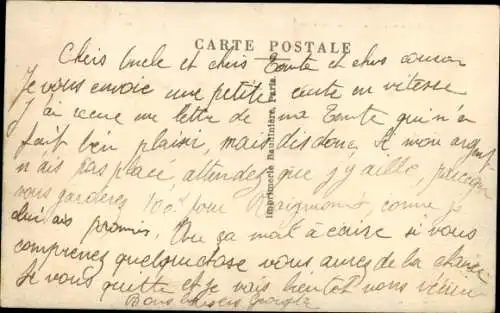 CARTE POSTALE
Chers Oncle et chers Tente et chers cousin
Je vous envoie une petite carte en vitesse
J'ai reçue une lettre de ma Tente qui m'a
fait bien plaisir, mais dis donc si mon argent
n'ais pas placé attendez que j'y aille, puisque
vous garderez 100 pour comme je
lui ais promis. Que ça mal écrire si vous
comprenez quelque chose vous aurez de la chance
Je vous quitte et je vais bientôt vous
Bons baisers
Imprimerie Baudinière, Paris